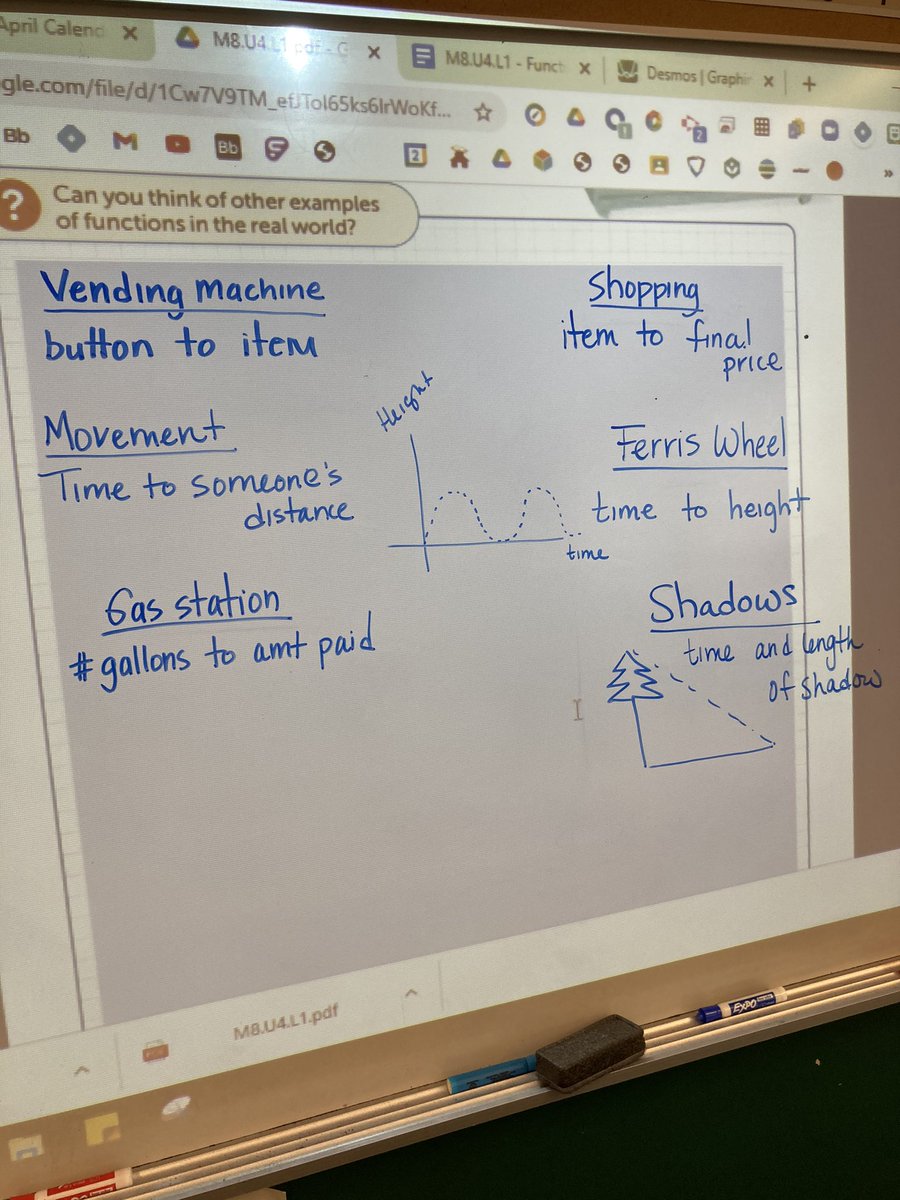 April Calend
M8.U4.L1.pdf - G
M8.U4.L1 - Funct
Desmos | Graphin
gle.com/file/d/1Cw7V9TM_efJTol65ks6IrWoKf...
Bb
Bb
2
1
2
?
Can you think of other examples
of functions in the real world?
Vending machine
button to item
Shopping
item to final
price
Movement
Time to someone's
distance
Height
time
Ferris Wheel
time to height
Gas station
# gallons to amt paid
Shadows
time and length
of shadow
M8.U4.L1.pdf
EXPO